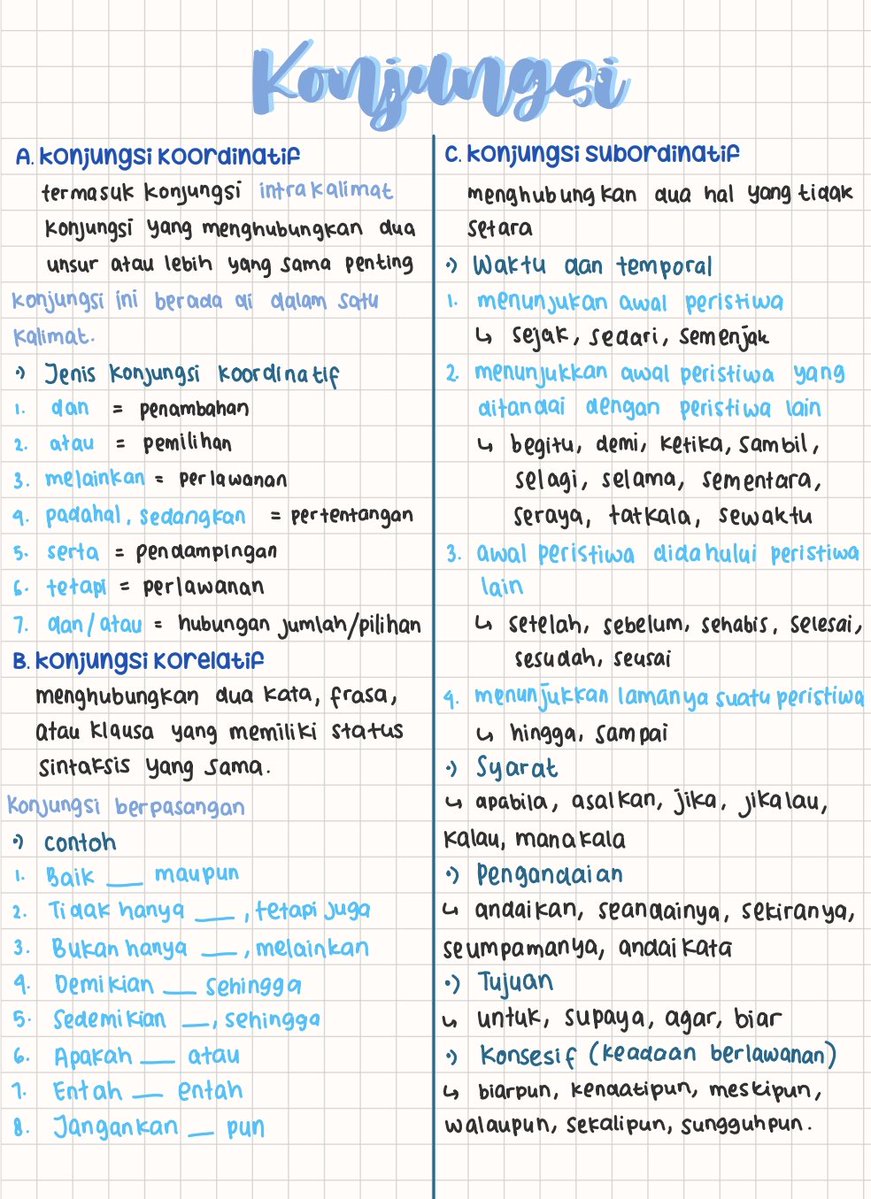 Konjungsi
A. Konjungsi Koordinatif
termasuk konjungsi intrakalimat
konjungsi yang menghubungkan dua
unsur atau lebih yang sama penting
konjungsi ini berada di dalam satu
kalimat.
•) Jenis konjungsi koordinatif
1. dan = penambahan
2. atau = pemilihan
3. melainkan = perlawanan
4. padahal, sedangkan = pertentangan
5. serta = pendampingan
6. tetapi = perlawanan
7. dan/atau = hubungan jumlah/pilihan
B. Konjungsi Korelatif
menghubungkan dua kata, frasa,
atau klausa yang memiliki status
sintaksis yang sama.
Konjungsi berpasangan
•) contoh
1. Baik ___ maupun
2. Tidak hanya ___, tetapi juga
3. Bukan hanya ___, melainkan
4. Demikian ___ sehingga
5. Sedemikian ___, sehingga
6. Apakah ___ atau
7. Entah ___ entah
8. Jangankan ___ pun
C. Konjungsi Subordinatif
menghubungkan dua hal yang tidak
setara
•) Waktu dan temporal
1. menunjukan awal peristiwa
↳ sejak, sedari, semenjak
2. menunjukkan awal peristiwa yang
ditandai dengan peristiwa lain
↳ begitu, demi, ketika, sambil,
selagi, selama, sementara,
seraya, tatkala, sewaktu
3. awal peristiwa didahului peristiwa
lain
↳ setelah, sebelum, sehabis, selesai,
sesudah, seusai
4. menunjukkan lamanya suatu peristiwa
↳ hingga, sampai
•) Syarat
↳ apabila, asalkan, jika, jikalau,
kalau, manakala
•) Pengandaian
↳ andaikan, seandainya, sekiranya,
seumpamanya, andaikata
•) Tujuan
↳ untuk, supaya, agar, biar
•) Konsesif (keadaan berlawanan)
↳ biarpun, kendatipun, meskipun,
walaupun, sekalipun, sungguhpun.